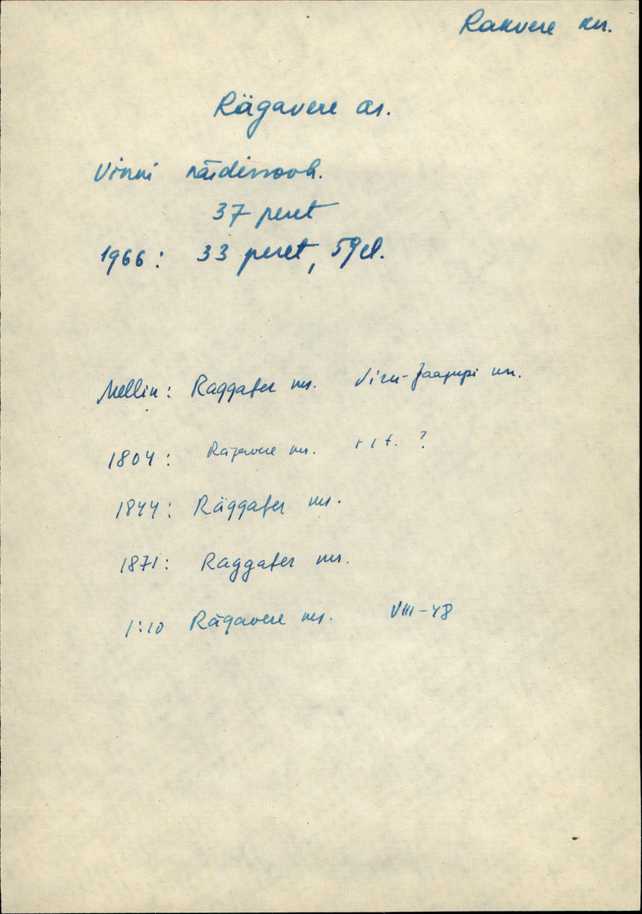 Rakvere kn.
Rägavere as.
Vinni näidissovh.
37 peret
1966: 33 peret, 59 el.
Mellin: Raggafer m. Viru-Jaagupi kn.
1804: Rägavere m. ?
1844: Räggafer m.
1871: Raggafer m.
1:10 Rägavere m. VIII-48